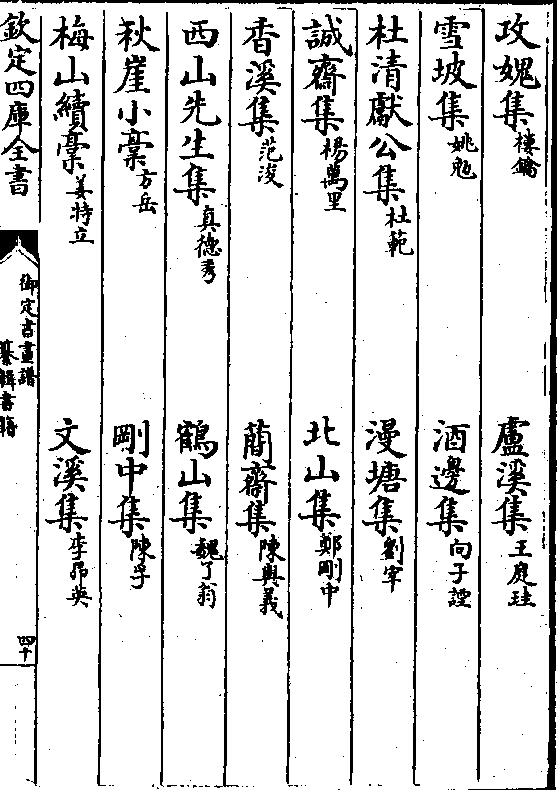 攻媿集樓鑰　盧溪集王庭珪
雪坡集姚勉　酒邊集向子諲
杜清獻公集杜範　漫塘集劉宰
誠齋集楊萬里　北山集鄭剛中
香溪集范浚　簡齋集陳與義
西山先生集真德秀　鶴山集魏了翁
秋崖小稾方岳　剛中集陳孚
梅山續稾姜特立　文溪集李昴英
欽定四庫全書
御定書畫譜
纂輯書籍
四十